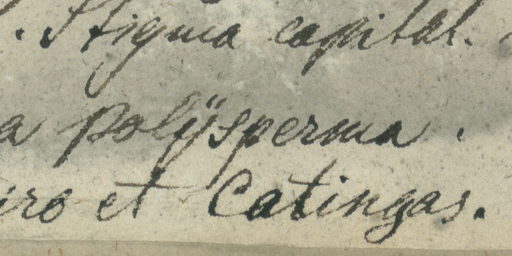 . Stigma capital.
a polÿsperma.
iro et Catingas.